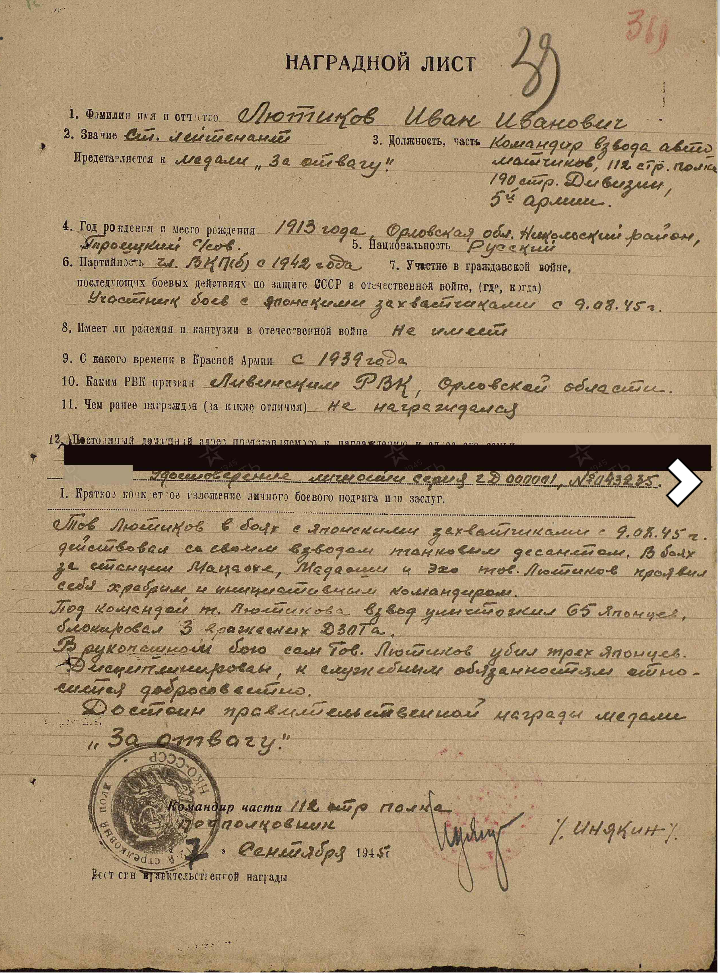 39
369
НАГРАДНОЙ ЛИСТ
1. Фамилия имя и отчество Лютиков Иван Иванович
2. Звание Ст. лейтенант 3. Должность, часть Командир взвода авто
Представляется к медали „За отвагу". матчиков, 112 стр. полка
190 стр. Дивизии,
5й армии.
4. Год рождения и место рождения 1913 года, Орловская обл. Никольский район,
Троицкий с/сов. 5. Национальность Русский
6. Партийность чл. ВКП(б) с 1942 года 7. Участие в гражданской войне,
последующих боевых действиях по защите СССР в отечественной войне, (где, когда)
Участник боев с японскими захватчиками с 9.08.45 г.
8. Имеет ли ранения и контузии в отечественной войне не имеет
9. С какого времени в Красной Армии с 1939 года
10. Каким РВК призван Ливенским РВК, Орловской области.
11. Чем ранее награжден (за какие отличия) не награждался
12. Постоянный домашний адрес представляемого к награждению и адрес его семьи
Удостоверение личности серия гД 000001, №043235.
I. Краткое конкретное изложение личного боевого подвига или заслуг.
Тов Лютиков в боях с японскими захватчиками с 9.08.45 г.
действовал со своим взводам танковым десантом. В боях
за станции Мацаохе, Мадаоши и Эхо тов. Лютиков проявил
себя храбрим и инициативним командиром.
Под командой т. Лютикова взвод уничтожил 65 Японцев,
блокировал 3 вражеских ДЗОТа.
В рукопашном бою сам Тов. Лютиков убил трех Японцев.
Дисциплинирован, к служебным обязанностям отно-
сится добросовестно.
Достоин правительственной награды медали
„За отвагу".
Командир части 112 стр полка
подполковник
/ИНЯКИН/.
7 " Сентября 1945г
правительственной награды
НКО-СССР